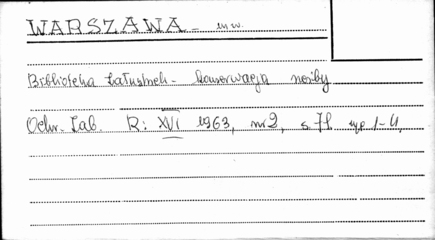 WARSZAWA - m.w.
Biblioteka Załuskich - konserwacja rzeźby
Ochr. Zab. R: XVI 1963, nr 2, s. 71 ryc 1-4,